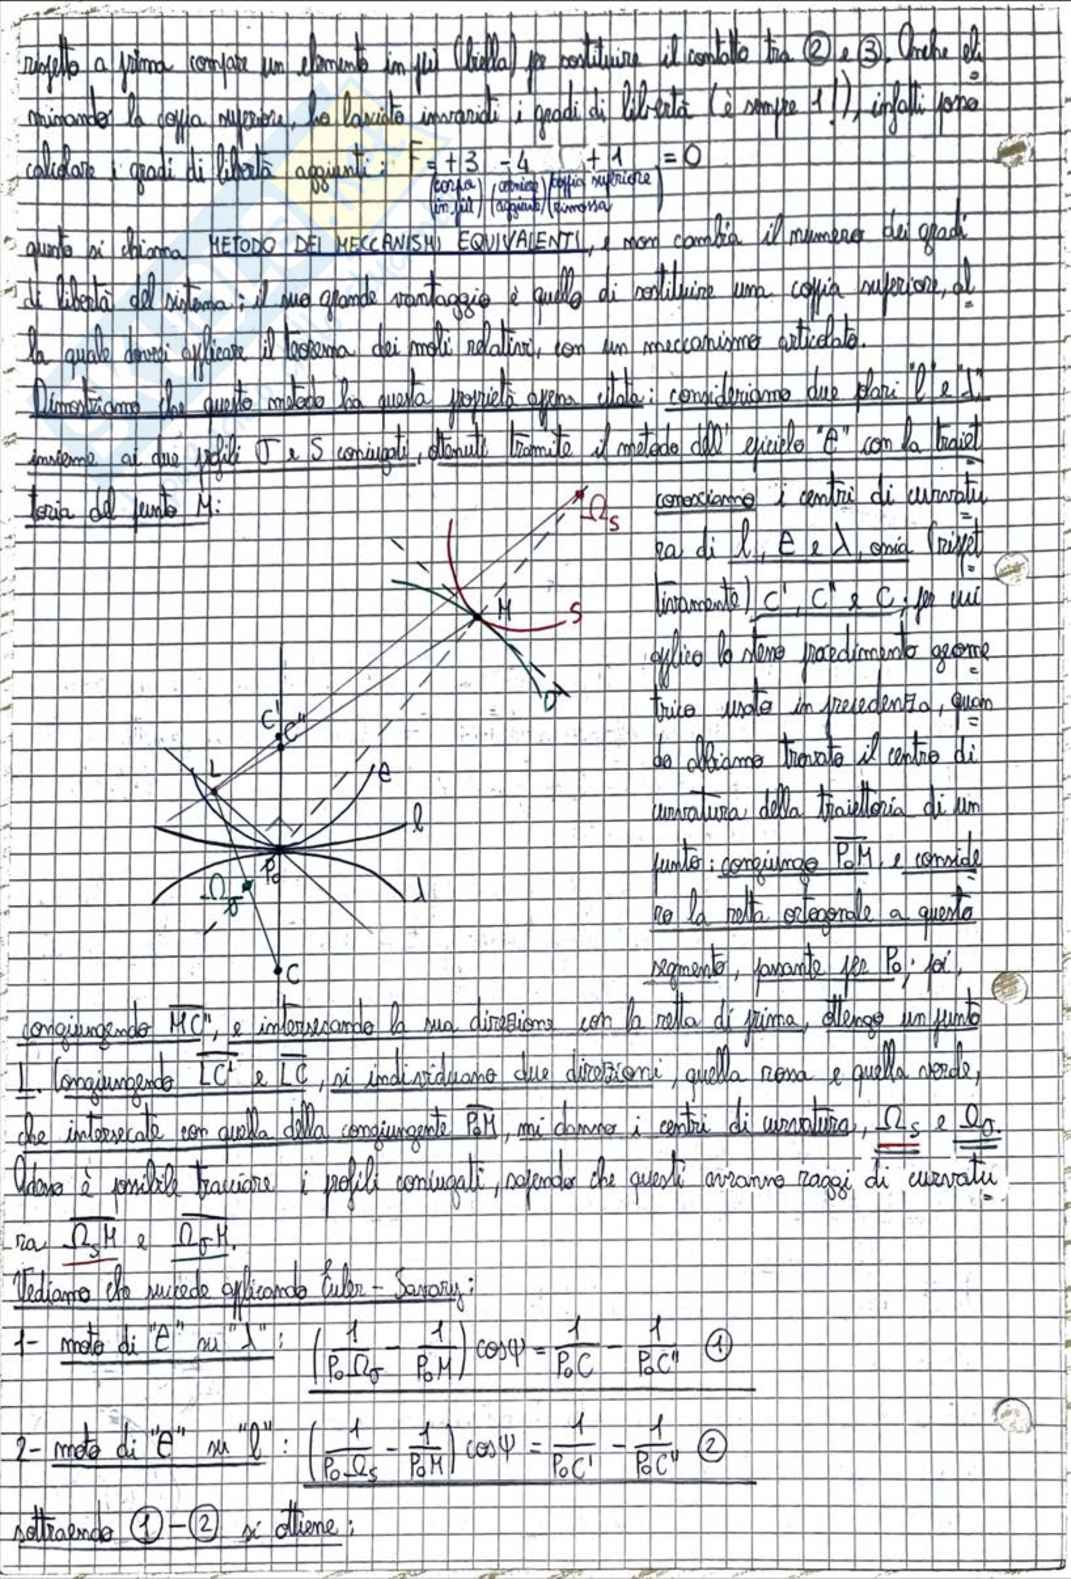 rispetto a prima compare un elemento in più (biella) per sostituire il contatto tra ② e ③. Anche eli
minando la coppia superiore, ho lasciato invariati i gradi di libertà (è sempre 1!!), infatti posso
calcolare i gradi di libertà aggiunti: F = +3 -4 +1 = 0
(corpo in più) (cerniere aggiunte) (coppia superiore rimossa)
questo si chiama METODO DEI MECCANISMI EQUIVALENTI, e non cambia il numero dei gradi
di libertà del sistema; il suo grande vantaggio è quello di sostituire una coppia superiore, al
la quale dovrei applicare il teorema dei moti relativi, con un meccanismo articolato.
Dimostriamo che questo metodo ha questa proprietà appena citata: consideriamo due polari "l" e "λ"
insieme ai due profili σ e S coniugati, ottenuti tramite il metodo dell'epiciclo "e" con la traiet
toria del punto M:
conosciamo i centri di curvatu
ra di l, e e λ, ossia (rispet
tivamente) C', C" e C; per cui
applico lo stesso procedimento geome
trico usato in precedenza, quan
do abbiamo trovato il centro di
curvatura della traiettoria di un
punto: congiungo P₀M, e conside
ro la retta ortogonale a questo
segmento, passante per P₀; poi,
Ωs
M
S
σ
C'
C"
L
e
l
P₀
Ωσ
λ
C
congiungendo MC", e intersecando la sua direzione con la retta di prima, ottengo un punto
L. Congiungendo LC' e LC, si individuano due direzioni, quella rossa e quella verde,
che intersecate con quella della congiungente P₀M, mi danno i centri di curvatura, Ωs e Ωσ.
Adesso è possibile tracciare i profili coniugati, sapendo che questi avranno raggi di curvatu
ra ΩsM e ΩσM.
Vediamo che succede applicando Euler-Savary:
1- moto di "e" su "λ": (1/P₀Ωσ - 1/P₀M) cosψ = 1/P₀C - 1/P₀C" ①
2- moto di "e" su "l": (1/P₀Ωs - 1/P₀M) cosψ = 1/P₀C' - 1/P₀C" ②
sottraendo ①-② si ottiene: